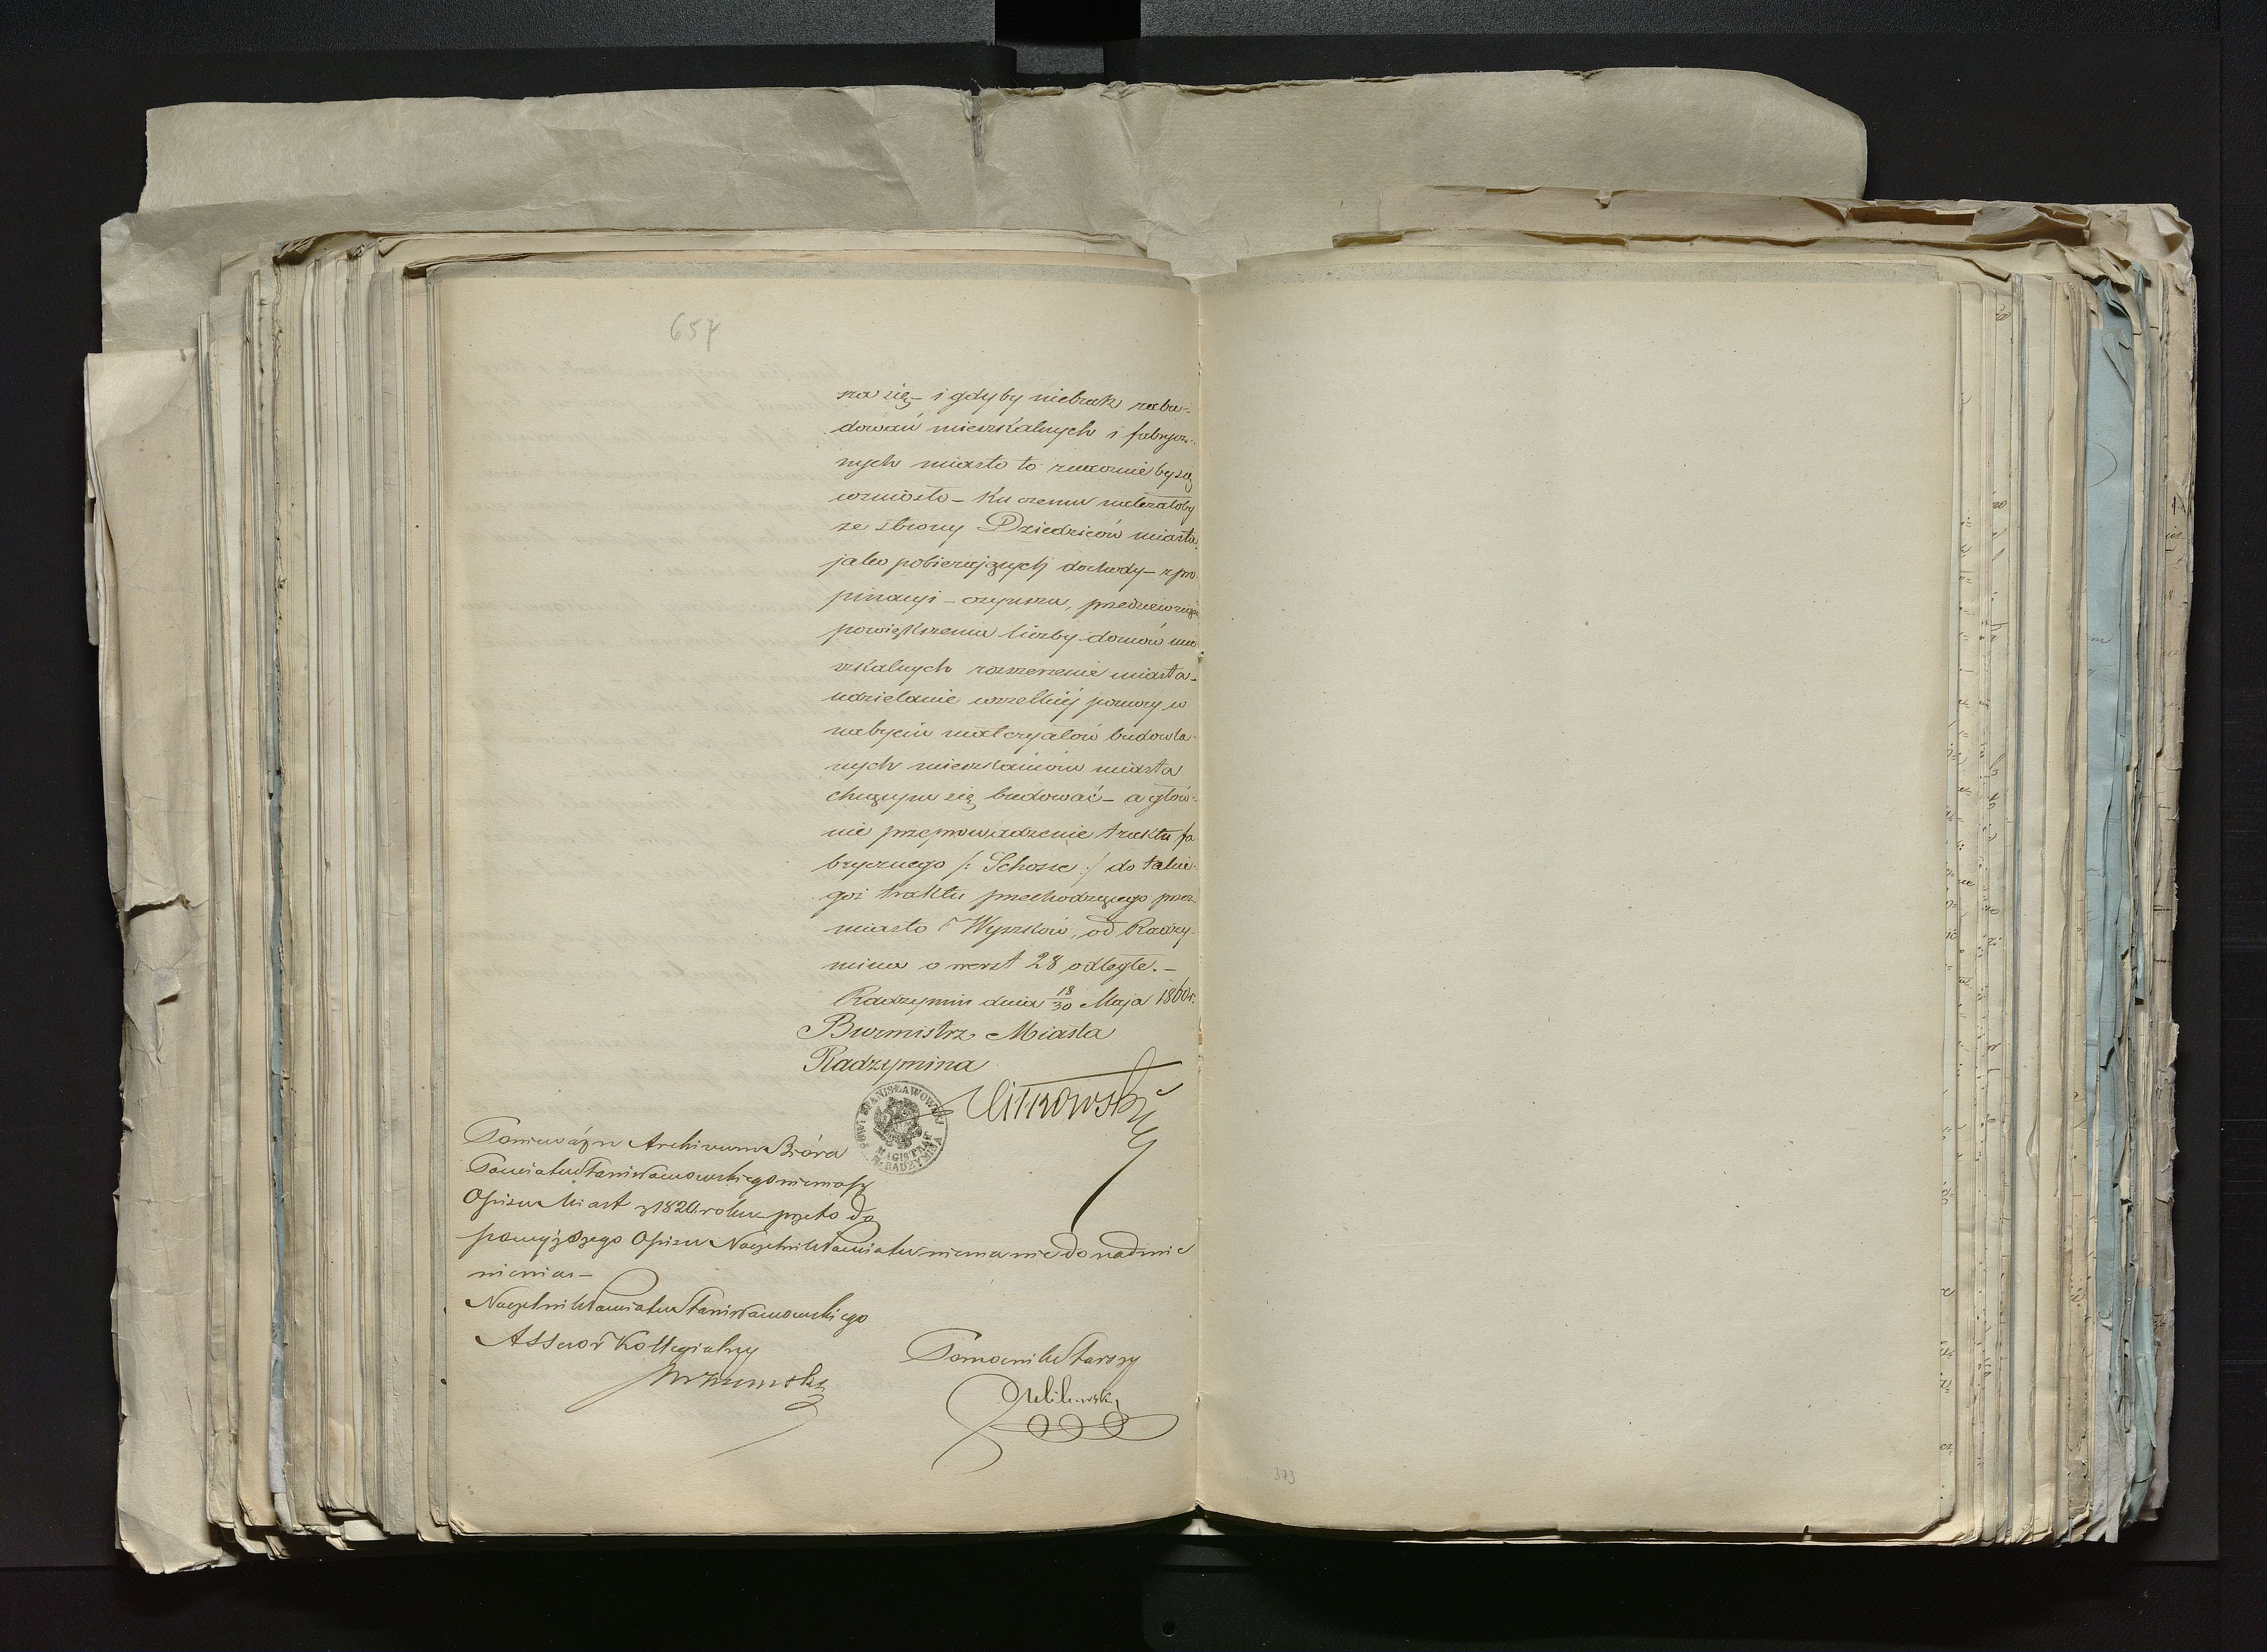 657
sza się – i gdyby niebrak zabu=
dowań mieszkalnych i fabrycz=
nych miasto to znacznie by się
wzniosło – Ku czemu należałoby
ze strony Dziedziców miasta,
jako pobierających dochody – z pro
pinacyi – czynszu, przedsiewzięcie
powiększenia liczby domów mie
szkalnych rozszerzenie miasta –
udzielanie wszelkiej pomocy w
nabyciu materyałów budowla=
nych mieszkańców miasta
chcącym się budować – a głów=
nie przeprowadzenie traktu fa
brycznego /: Schosse :/ do takie=
goż traktu przechodzącego przez
miasto Wyszków, od Radzy=
mina o werst 28 odległe. –
Radzymin dnia 18/30 Maja 1860 r.
Burmistrz Miasta
Radzymina
MAGISTRAT
M. RADZYMINA
Ponieważ w Archiwum Bióra
Powiatu Stanisławowskiego niemasz
Opisu Miast z 1820 roku przeto do
powyższego Opisu Naczelnik Powiatu niema nic do nadmie
nienia –
Naczelnik Powiatu Stanisławowskiego
Assesor Kollegialny
Pomocnik Starszy
373